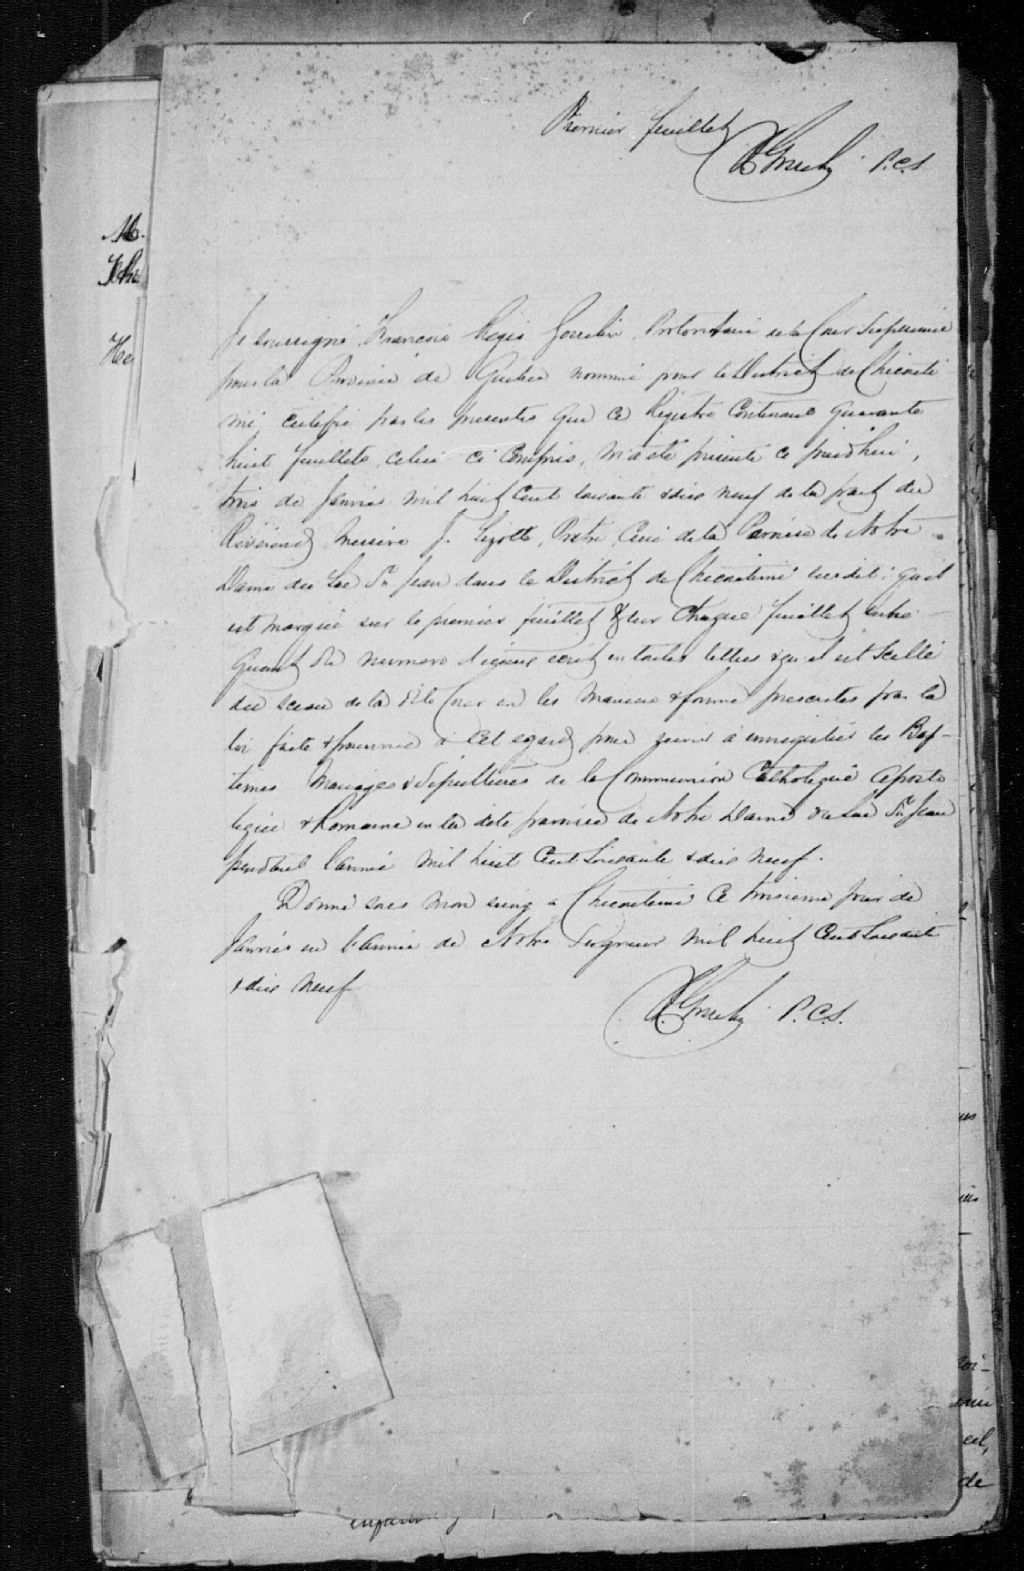 Premier feuillet
P.C.S
Je soussigné, François Régis Gosselin, Protonotaire de la Cour Supérieure
pour la Province de Québec nommé pour le District de Chicouti
mi, certifie par les présentes que ce Régistre Contenant quarante
huit feuillets, celui ci compris, m'a été présenté ce jourd'hui,
trois de Janvier mil huit Cent soixante & dix neuf de la part du
Révérend Messire J. Lizotte, Prêtre, Curé de la Paroisse de Notre
Dame du Lac St Jean dans le District de Chicoutimi susdit; qu'il
est marqué sur le premier feuillet & sur Chaque feuillet subsé
quent du numero d'iceux écrit en toutes lettres & qu'il est Scellé
du sceau de la dite Cour en les maniere & forme prescrites par la
loi faite & pourvue à cet egard pour servir à enregistrer les Bap-
temes Mariages & Sépultures de la Communion Catholique Aposto
lique & Romaine en la dite paroisse de Notre Dame du Lac St Jean
pendant l'année mil huit Cent Soixante & dix neuf.
Donné sous mon seing à Chicoutimi Ce troisième jour de
Janvier en l'année de Notre Seigneur mil huit Cent Soixante
& dix neuf
P.C.S.